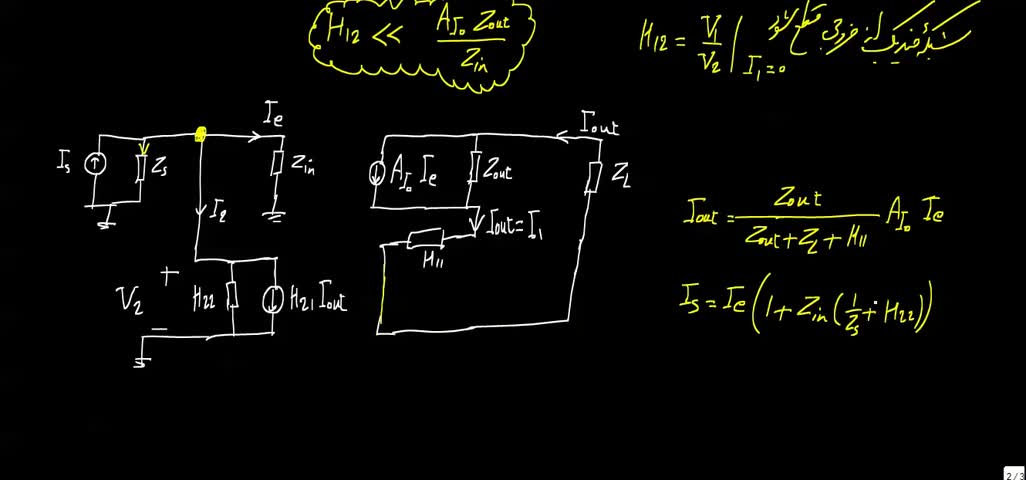 H12 << AI0 Zout / Zin
H12 = V1 / V2 | I1 = 0
Ie
Is
Zs
Zin
I2
V2
+
−
H22
H21 Iout
Iout
AI0 Ie
Zout
ZL
Iout = I1
H11
Iout = Zout / (Zout + ZL + H11) AI0 Ie
Is = Ie (1 + Zin (1/Zs + H22))
2/3